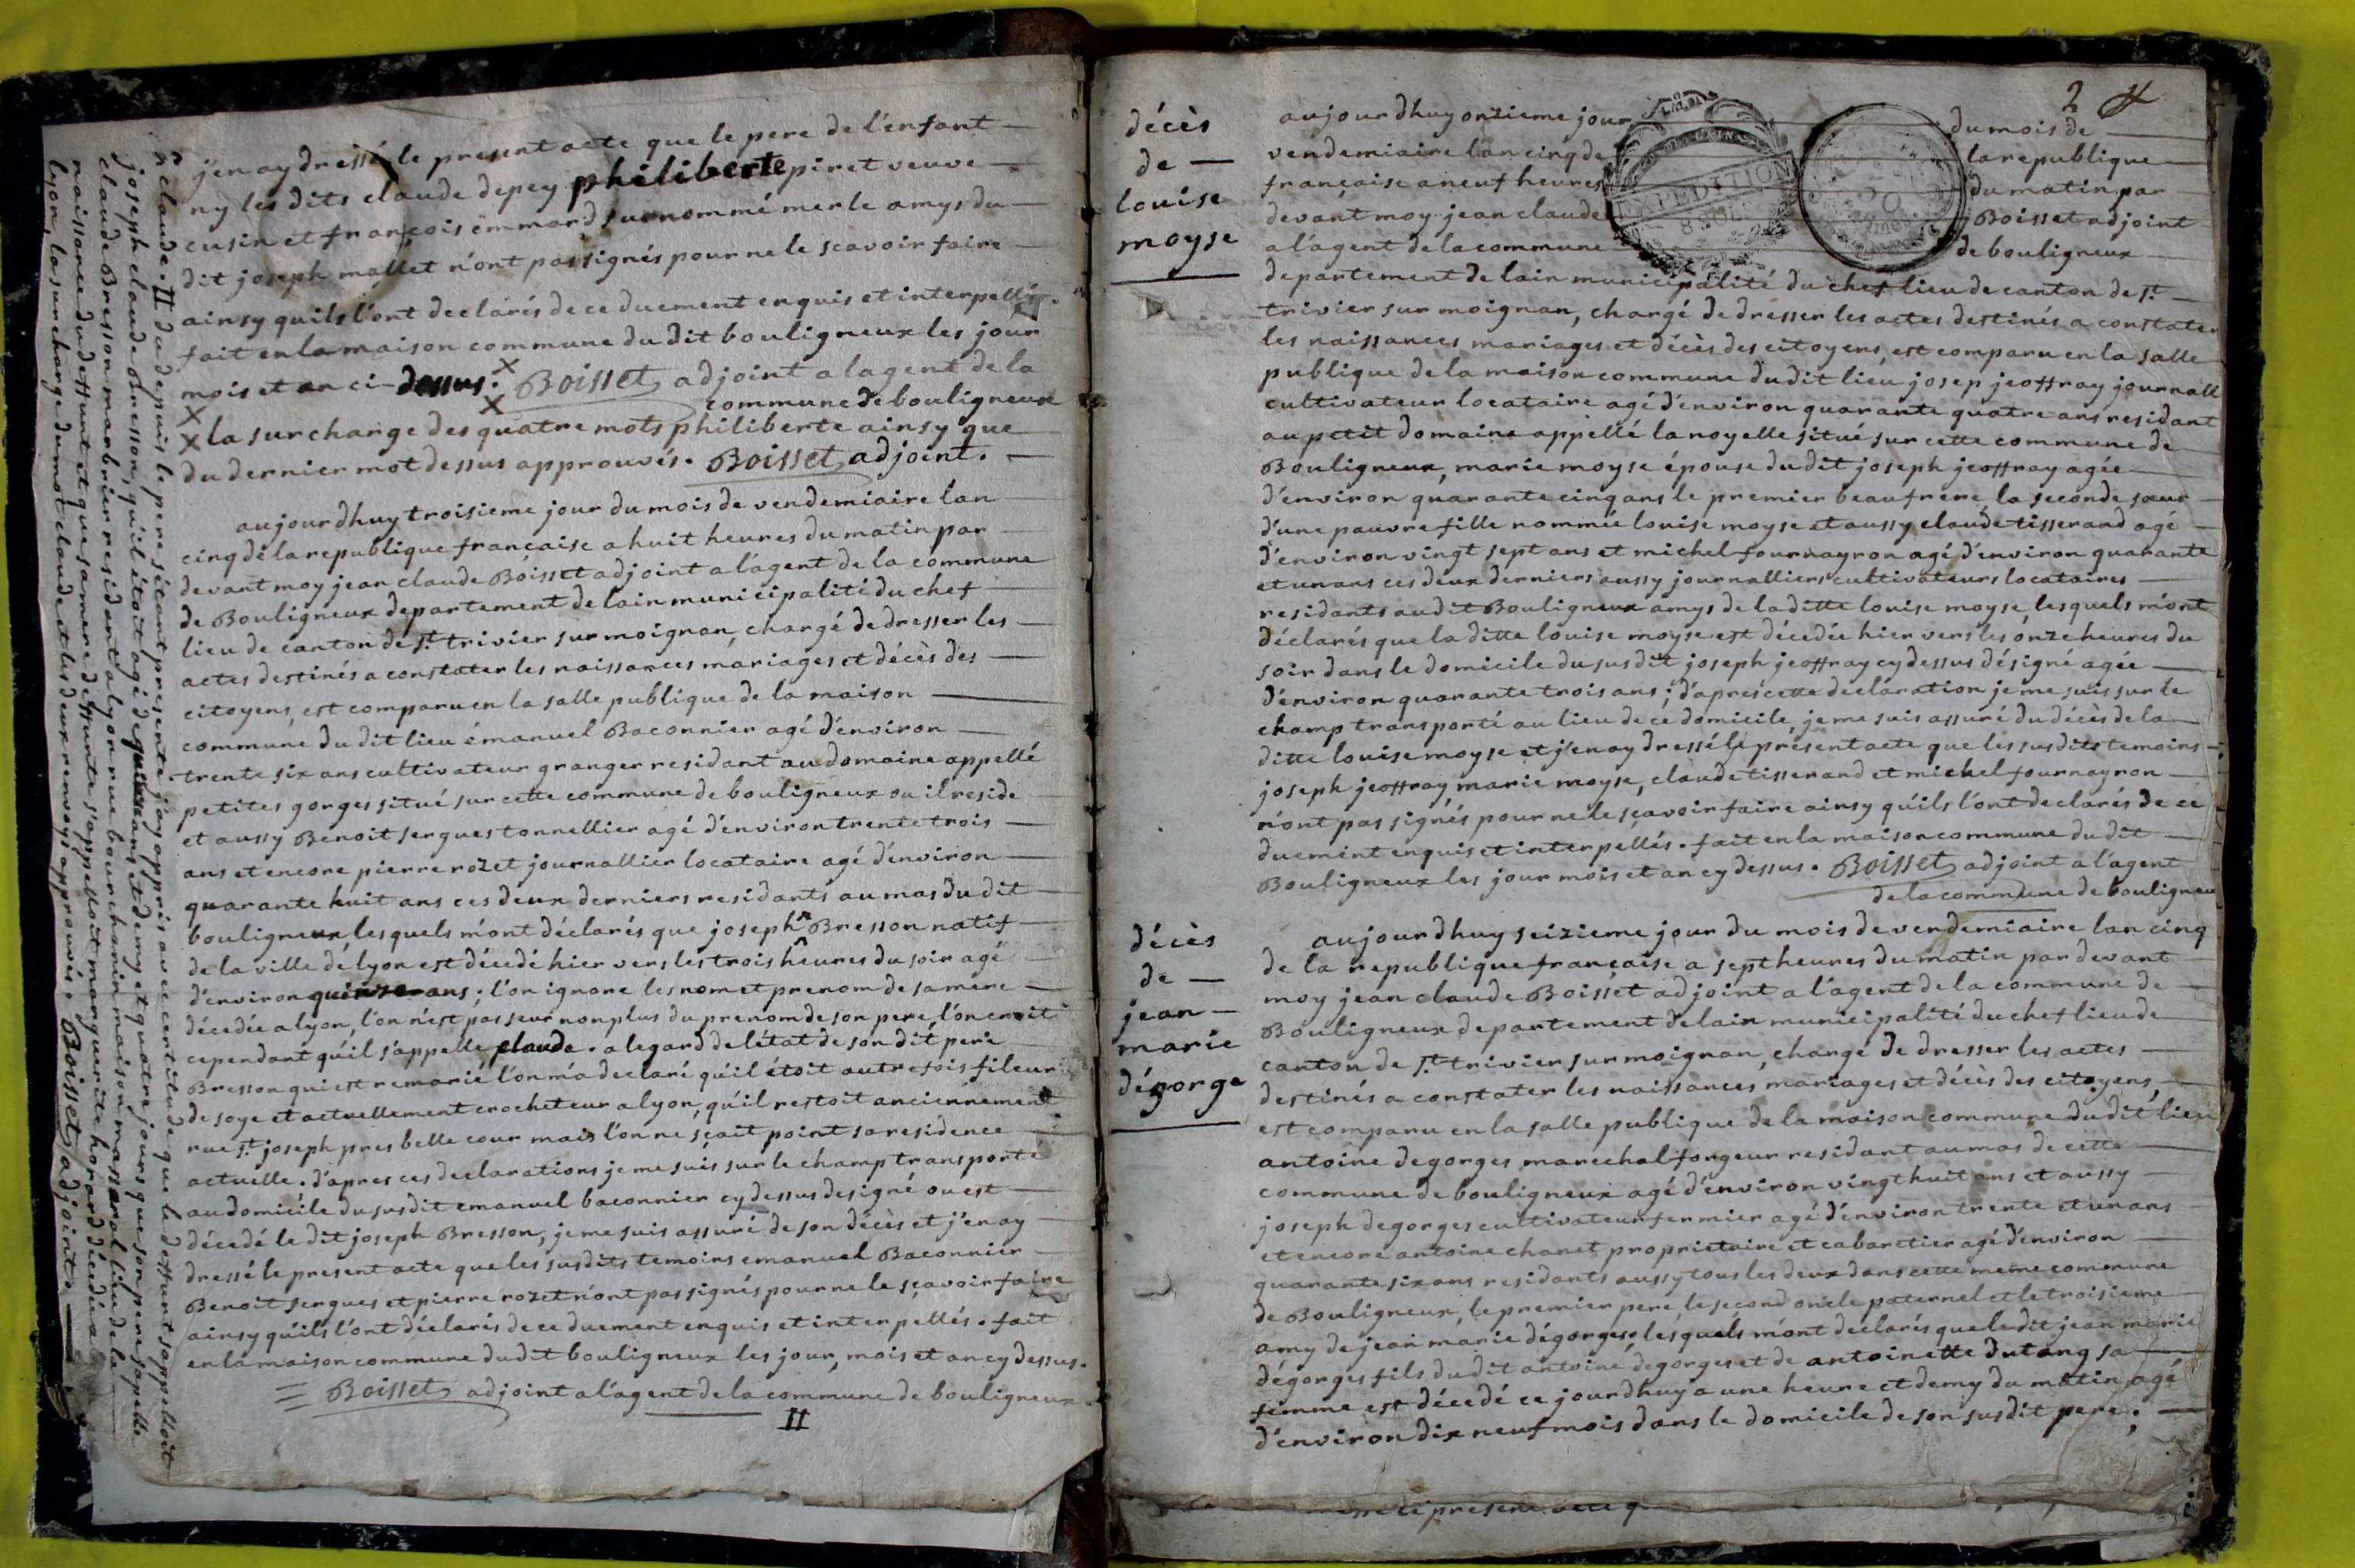 j'en ay dressé le present acte que le pere de l'enfant
ny les dits claude depey philiberte piret veuve
cusin et françois emmard surnommé merle amys du
dit joseph mallet n'ont pas signés pour ne le sçavoir faire
ainsy quils l'ont declarés de ce duement enquis et interpellés.
fait en la maison commune du dit bouligneux les jour
mois et an ci-dessus. X Boisset adjoint a lagent de la
commune de bouligneux
X X la surcharge des quatre mots philiberte ainsy que
du dernier mot dessus approuvés. Boisset adjoint.
aujourdhuy troisieme jour du mois de vendemiaire lan
cinq de la republique française a huit heures du matin par
devant moy jean claude Boisset adjoint a l'agent de la commune
de Bouligneux departement de lain municipalité du chef
lieu de canton de st. trivier sur moignan, chargé de dresser les
actes destinés a constater les naissances mariages et décès des
citoyens, est comparu en la salle publique de la maison
commune du dit lieu émanuel Baconnier agé d'environ
trente six ans cultivateur granger residant au domaine appellé
petites gorges situé sur cette commune de bouligneux ou il reside
et aussy Benoit sergues tonnellier agé d'environ trente trois
ans et encore pierre rozet journallier locataire agé d'environ
quarante huit ans ces deux derniers residants au mas du dit
bouligneux, lesquels m'ont déclarés que joseph ^ Bresson natif
de la ville de lyon est décedé hier vers les trois heures du soir agé
d'environ quinze ans; l'on ignore les nom et prenom de sa mere
décedée a lyon, l'on n'est pas seur non plus du prenom de son pere, l'on croit
cependant qu'il s'appelle claude. a legard de l'état de son dit pere
Bresson qui est remarié l'on m'a declaré qu'il étoit autrefois fileur
de soye et actuellement crocheteur a lyon, qu'il restoit anciennement
rue st. joseph pres belle cour mais l'on ne sçait point sa residence
actuelle. d'apres ces declarations je me suis sur le champ transporté
au domicile du susdit emanuel baconnier cy dessus designé ou est
décedé le dit joseph Bresson, je me suis assuré de son décès et j'en ay
dressé le present acte que les susdits temoins emanuel Baconnier
Benoit sergues et pierre rozet n'ont pas signés pour ne le sçavoir faire
ainsy quils l'ont déclarés de ce duement enquis et interpellés. fait
en la maison commune du dit bouligneux les jour, mois et an cy dessus.
Boisset adjoint a l'agent de la commune de bouligneux
II
^ claude. II du depuis le pere s'étant presenté j'ay appris avec certitude que le deffunt s'appelloit
joseph claude Bresson, qu'il étoit agé de quinze ans et demy et quatre jours que son pere s'apelle
claude Bresson marbrier residant a lyon rue bourchanin maison massaral lieu de la
naissance du deffunt et que sa mere deffunte s'appelloit marguerite horard décedée a
lyon, la surcharge du mot claude et les deux renvoys approuvés. Boisset adjoint.
2
décès
de
louise
moyse
aujourdhuy onzieme jour du mois de
vendemiaire lan cinq de la republique
française a neuf heures du matin par
devant moy jean claude Boisset adjoint
a l'agent de la commune de bouligneux
EXPEDITION
departement de lain municipalité du chef lieu de canton de st.
trivier sur moignan, chargé de dresser les actes destinés a constater
les naissances mariages et décès des citoyens, est comparu en la salle
publique de la maison commune du dit lieu josep jeoffray journall
cultivateur locataire agé d'environ quarante quatre ans residant
au petit domaine appellé la noyelle situé sur cette commune de
Bouligneux, marie moyse épouse du dit joseph jeoffray agée
d'environ quarante cinq ans le premier beaufrere, la seconde sœur
d'une pauvre fille nommée louise moyse et aussy claude tisserand agé
d'environ vingt sept ans et michel fournayron agé d'environ quarante
et un ans ces deux derniers aussy journalliers cultivateurs locataires
residants au dit Bouligneux amys de la ditte louise moyse, lesquels m'ont
déclarés que la ditte louise moyse est décedée hier vers les onze heures du
soir dans le domicile du susdit joseph jeoffray cy dessus désigné agée
d'environ quarante trois ans; d'apres cette declaration je me suis sur le
champ transporté au lieu de ce domicile, je me suis assuré du décès de la
ditte louise moyse et j'en ay dressé le présent acte que les susdits temoins
joseph jeoffray, marie moyse, claude tisserand et michel fournayron
n'ont pas signés pour ne le sçavoir faire ainsy qu'ils l'ont declarés de ce
duement enquis et interpellés. fait en la maison commune du dit
Bouligneux les jour mois et an cy dessus. Boisset adjoint a l'agent
de la commune de bouligneux
décès
de
jean
marie
dégorge
aujourdhuy seizieme jour du mois de vendemiaire lan cinq
de la republique française a sept heures du matin par devant
moy jean claude Boisset adjoint a l'agent de la commune de
Bouligneux departement de lain municipalité du chef lieu de
canton de st. trivier sur moignan, chargé de dresser les actes
destinés a constater les naissances, mariages et décès des citoyens,
est comparu en la salle publique de la maison commune du dit lieu
antoine degorges marechal forgeur residant au mas de cette
commune de bouligneux agé d'environ vingt huit ans et aussy
joseph degorges cultivateur fermier agé d'environ trente et un ans
et encore antoine chanet proprietaire et cabaretier agé d'environ
quarante six ans residants aussy tous les deux dans cette meme commune
de Bouligneux, le premier pere, le second oncle paternel et le troisieme
amy de jean marie dégorges, lesquels m'ont declarés que le dit jean marie
dégorges fils du dit antoine degorges et de antoinette dutang sa
femme est décedé ce jourdhuy a une heure et demy du matin, agé
d'environ dix neuf mois dans le domicile de son susdit pere;
le present acte q